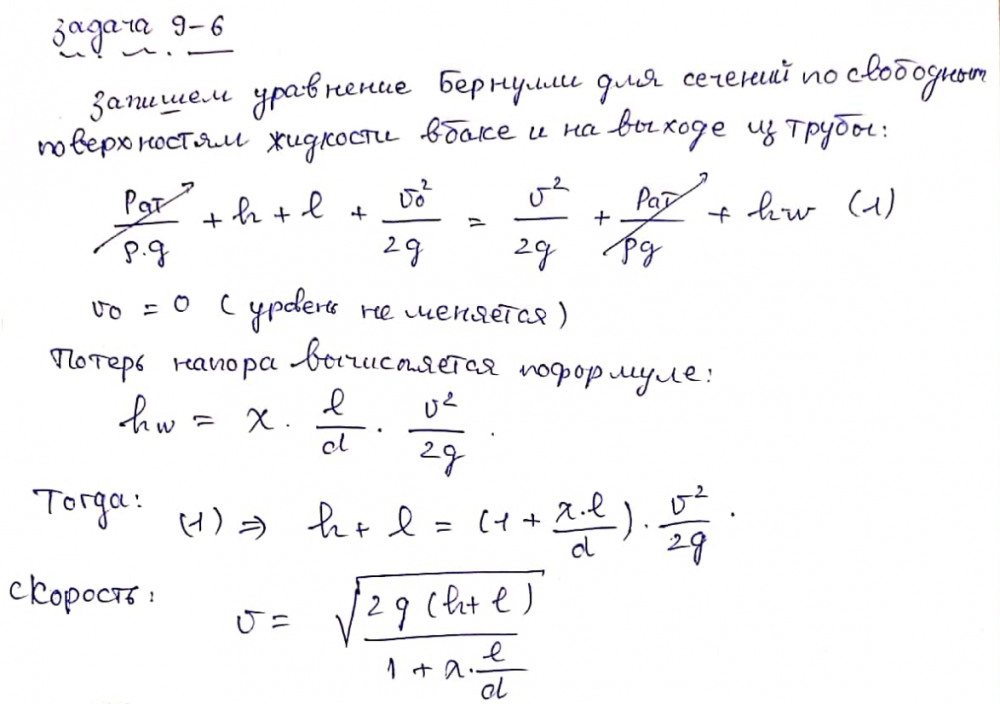 задача 9-6
Запишем уравнение Бернулли для сечений по свободным
поверхностям жидкости в баке и на выходе из трубы:
Pат/ρ.g + h + l + v₀²/2g = v²/2g + Pат/ρg + hw (1)
v₀ = 0 (уровень не меняется)
Потерь напора вычисляется по формуле:
hw = λ · l/d · v²/2g .
Тогда: (1) ⇒ h + l = (1 + λ·l/d) · v²/2g .
Скорость: v = √(2g(h+l)/(1 + λ·l/d))